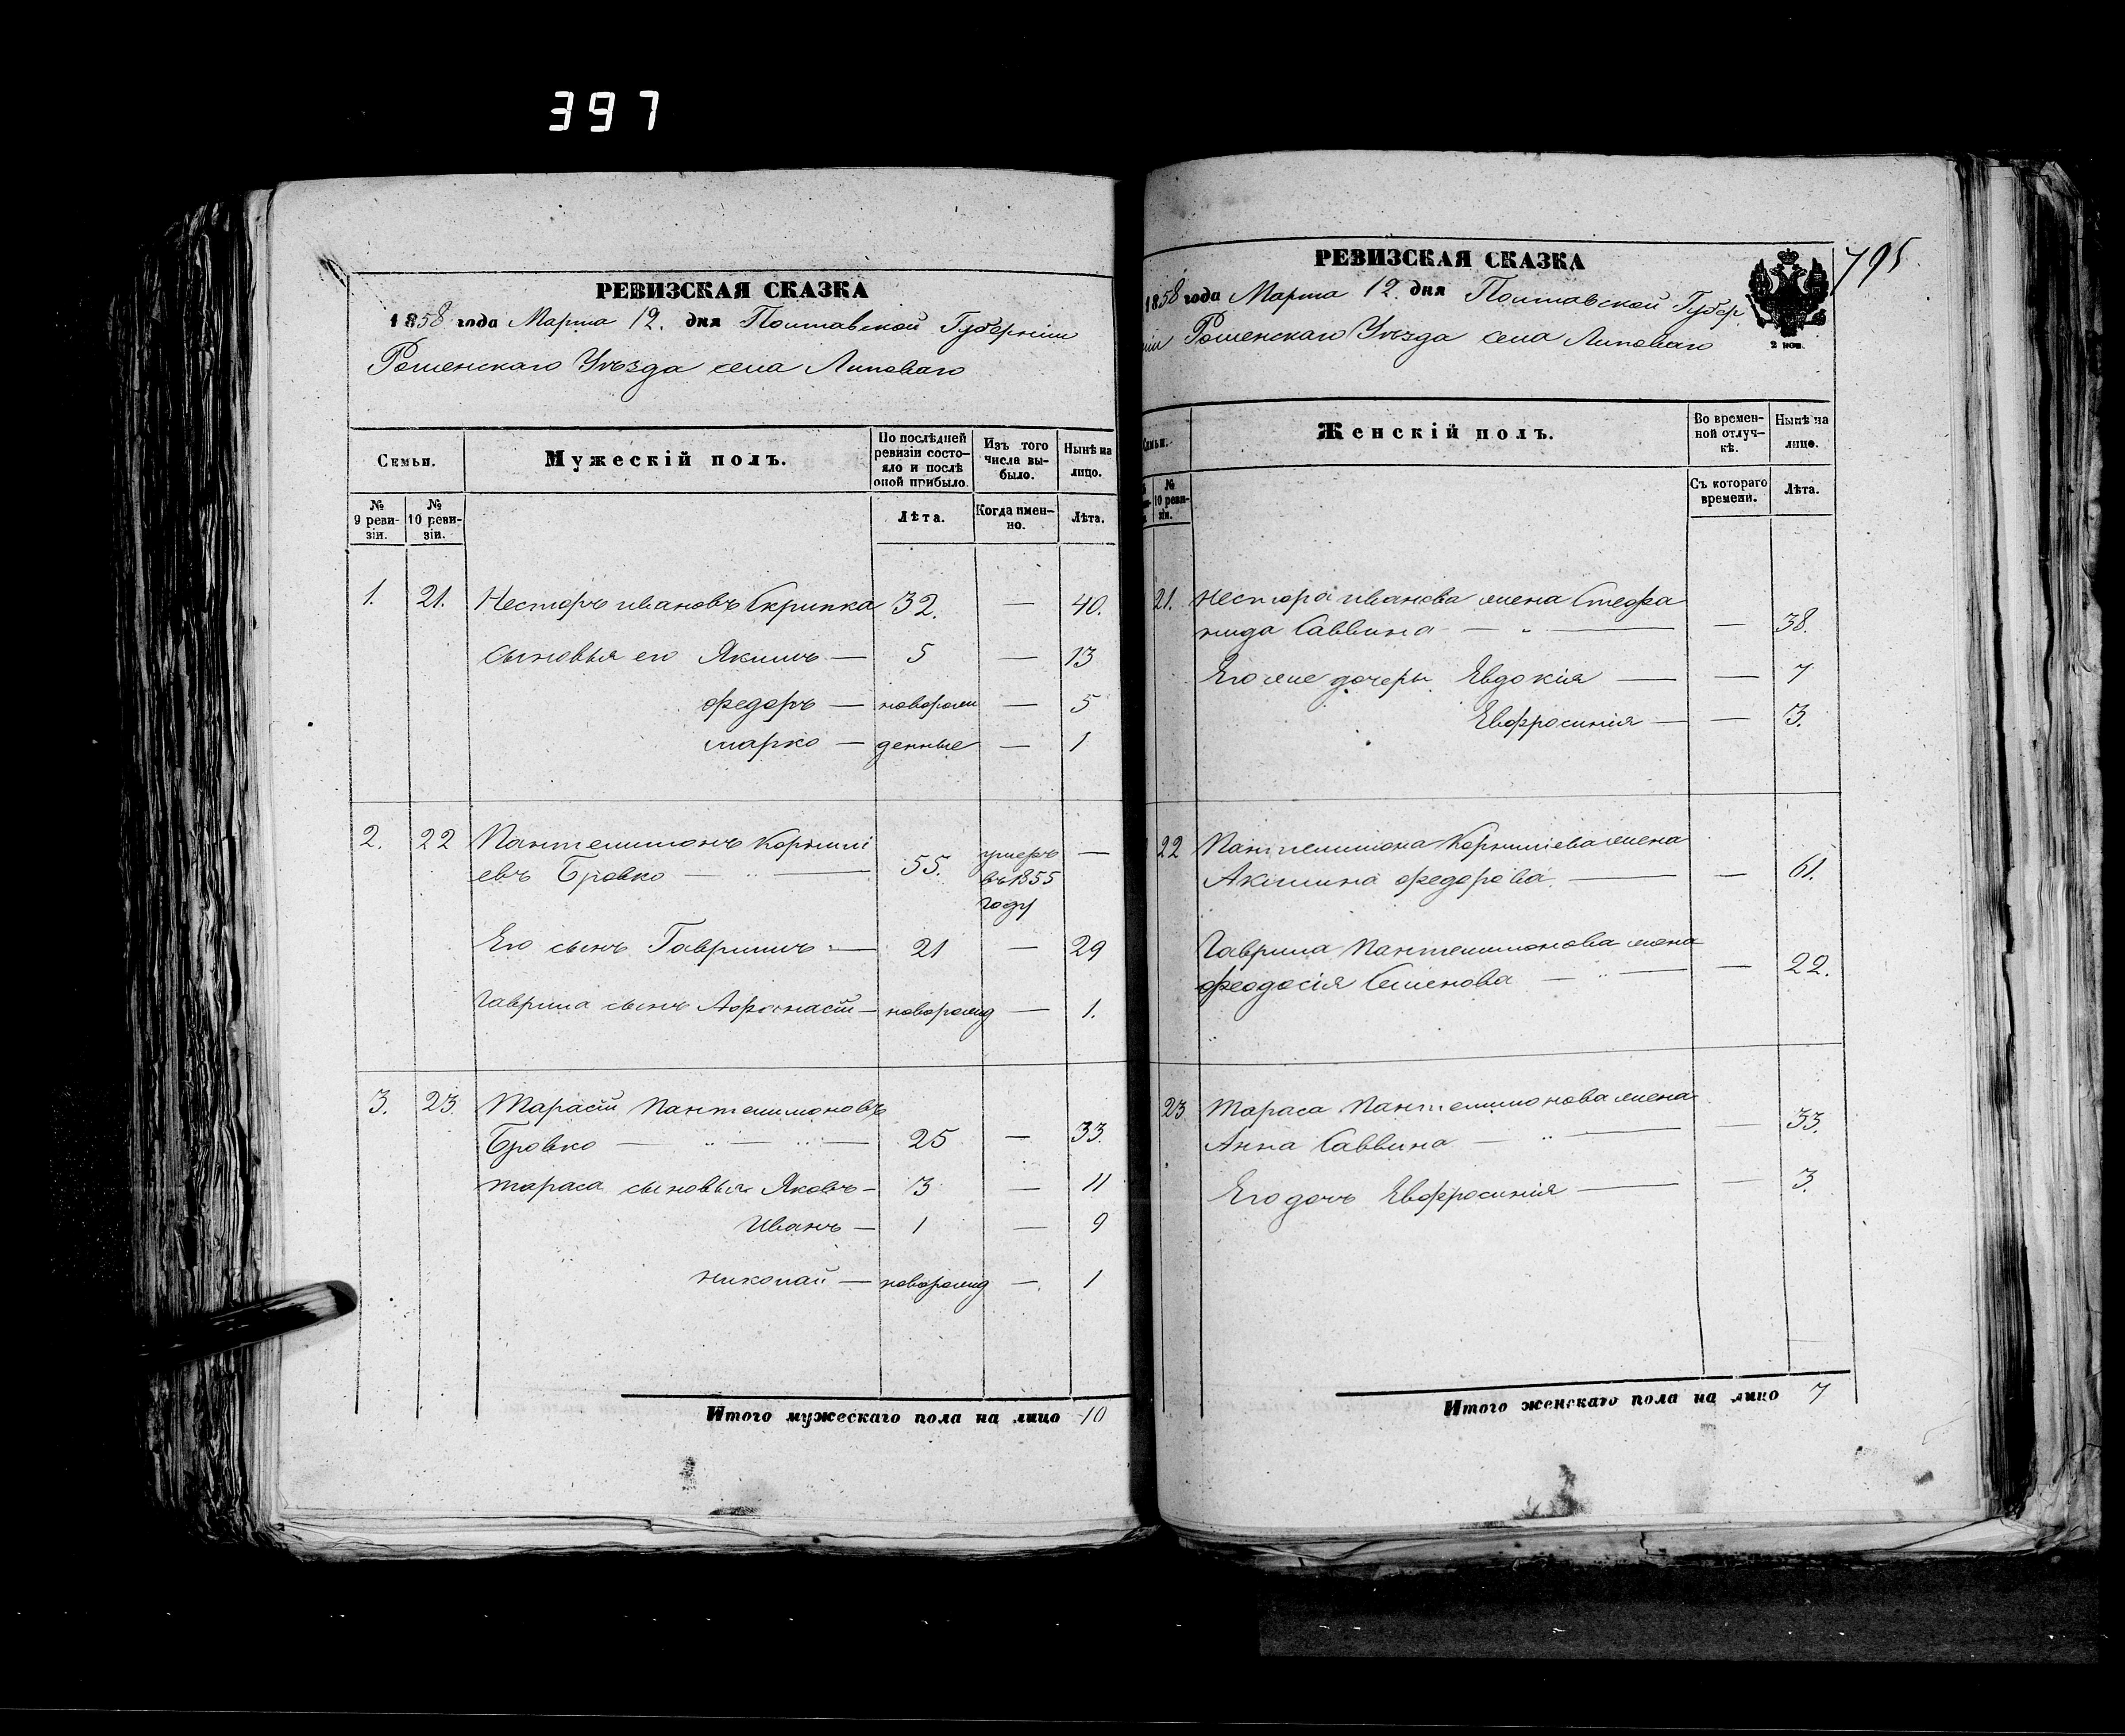 397
РЕВИЗСКАЯ СКАЗКА
1858 года Марта 12. дня Полтавской Губерніи
Роменскаго Уѣзда села Липоваго
Семьи.
Мужескій полъ.
По послѣдней ревизіи состояло и послѣ оной прибыло.
Изъ того числа выбыло.
Нынѣ на лицо.
№ 9 ревизіи.
№ 10 ревизіи.
Лѣта.
Когда именно.
Лѣта.
1. 21. Несторъ ивановъ Скрипка 32. — 40.
сыновья его Якимъ — 5 — 13
федоръ — новорож — 5
марко — денные — 1
2. 22 Пантелимонъ Корнилі
евъ Бровко — 55. умеръ въ 1855 году —
Его сынъ Гавриилъ — 21 — 29
Гаврила сынъ Афонасій — новорожд — 1.
3. 23. Тарасій Пантелимоновъ
Бровко — 25 — 33.
тараса сыновья Яковъ — 3 — 11
Иванъ — 1 — 9
николай — новорожд — 1
Итого мужескаго пола на лицо 10
РЕВИЗСКАЯ СКАЗКА
795
1858 года Марта 12. дня Полтавской Губер
ніи Роменскаго Уѣзда села Липоваго
2 коп.
Семьи.
Женскій полъ.
Во временной отлучкѣ.
Нынѣ на лицо.
№ 10 ревизіи.
Съ котораго времени.
Лѣта.
21. Нестора иванова жена Стефа
нида Саввина — — 38.
Его же дочери Евдокія — — 7
Евфросинія — — 3.
22 Пантелимона Корниліева жена
Акилина федорова. — — 61.
Гаврила Пантелимонова жена
феодосія Семенова — — 22.
23. Тараса Пантелимонова жена
Анна Саввина — — 33.
Его дочь Евфросинія — — 3.
Итого женскаго пола на лицо 7